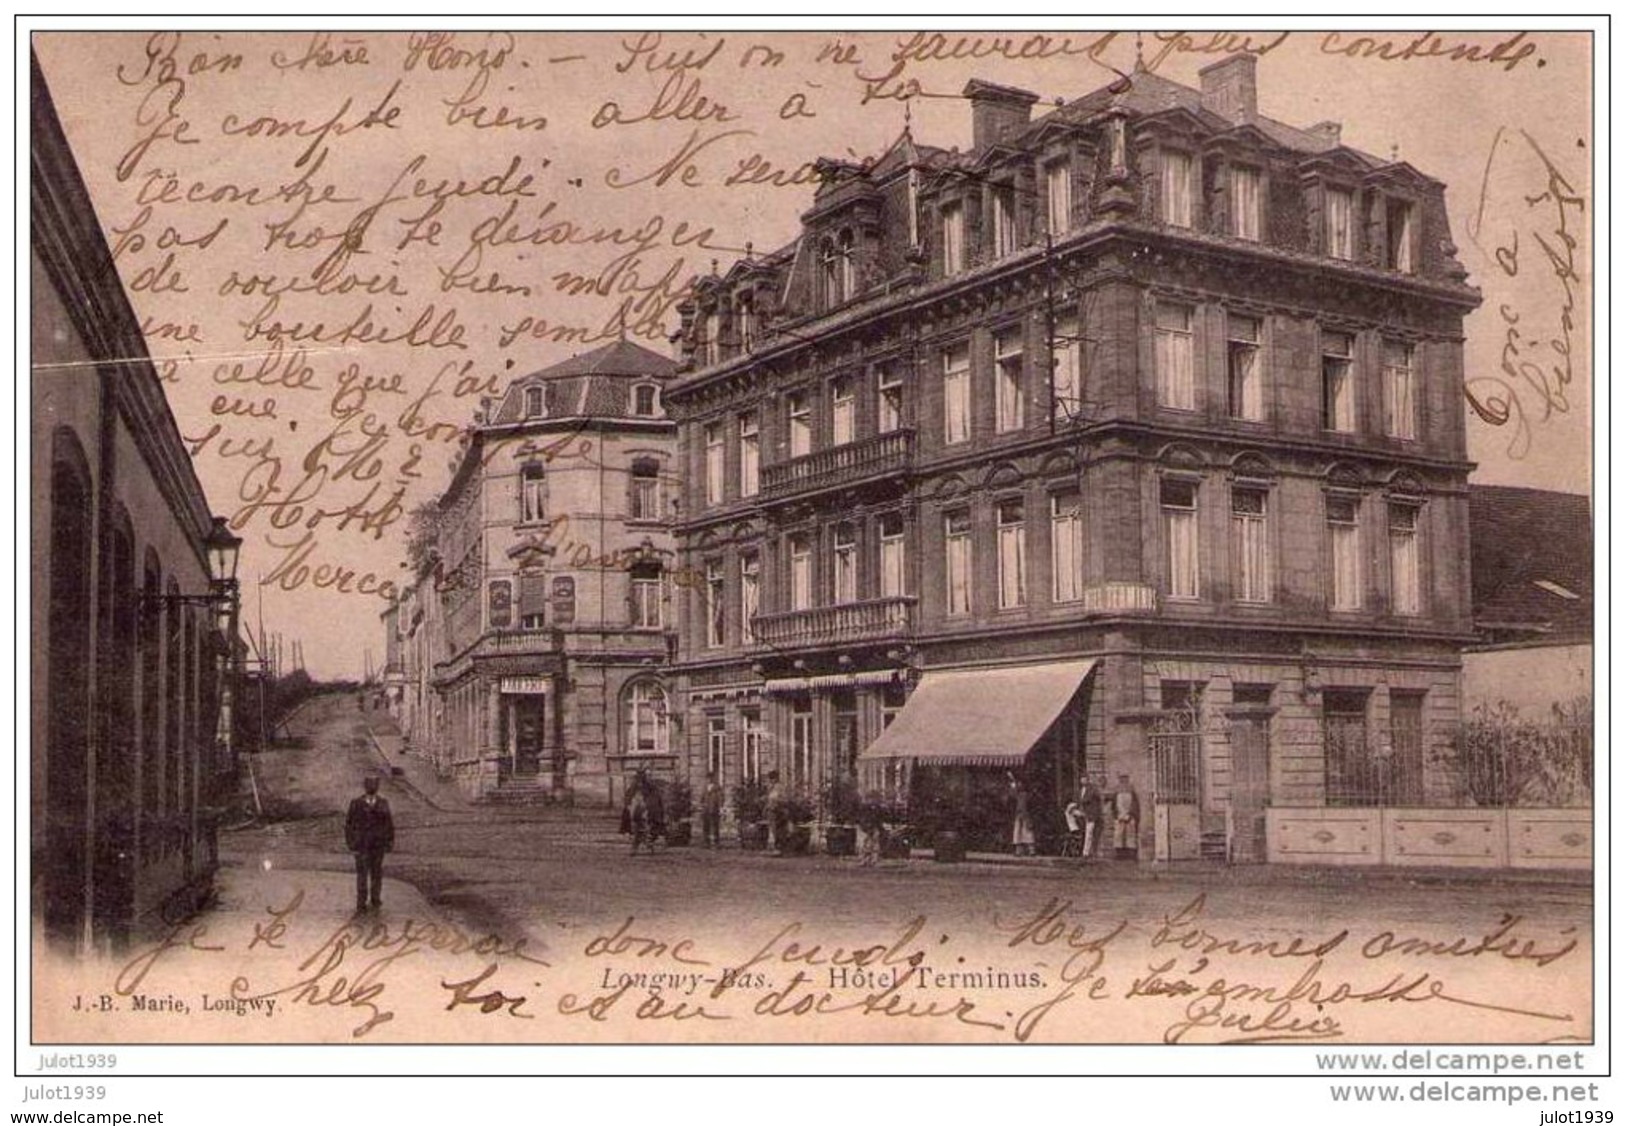 Bien chère Hono. — Suis on ne saurait plus contente.
Je compte bien aller à ta
recontre jeudi. Ne serais
pas trop te déranger
de vouloir bien m'a
une bouteille sembla
à celle que j'ai
eue. Je compte
sur Mr
Hotel
Merci
L'avance
Donc à
bientôt.
Je te payerai donc jeudi. Mes bonnes amitiés
chez toi et au docteur. Je t'embrasse
Julia
Longwy-Bas. - Hôtel Terminus.
J.-B. Marie, Longwy.
Julot1939
www.delcampe.net
Julot1939
www.delcampe.net
www.delcampe.net
julot1939